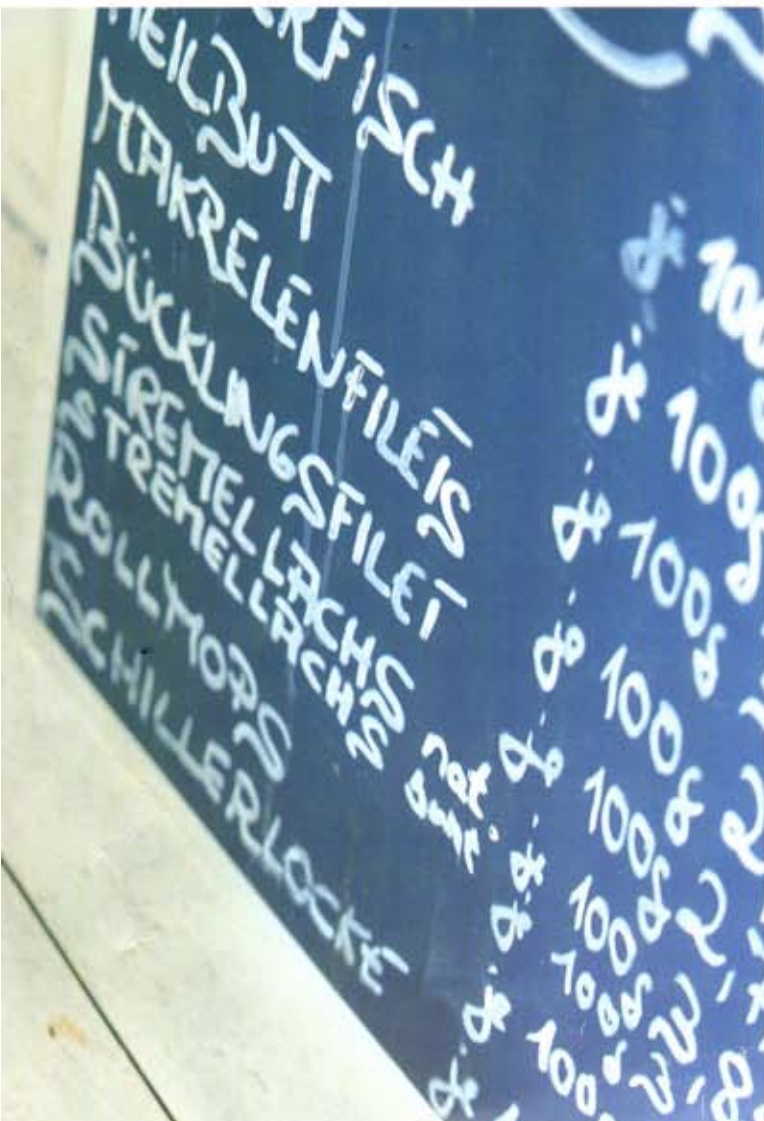 ERFISCH
HEILBUTT
MAKRELENFILETS je 100
BÜCKLINGSFILET je 100g
STREMELLACHS nat je 100g
STREMELLACHS bunt je 100g
ROLLMOPS je 100g
SCHILLERLOCKE je 100g